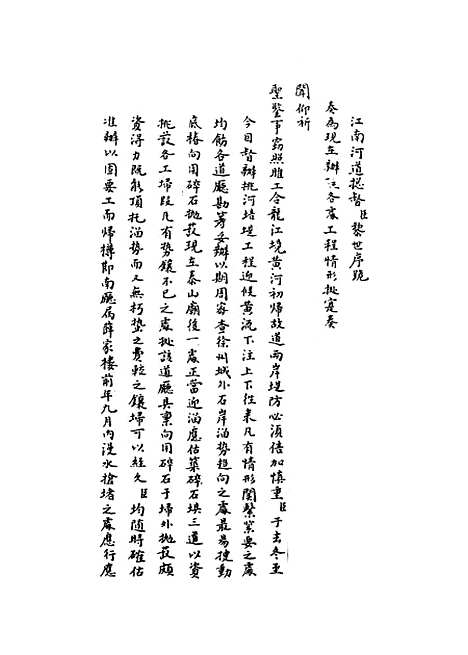 江南河道總督臣黎世序跪
奏為現在辦理各處工程情形恭摺具奏
聞仰祈
聖鑒事竊照睢工合龍江境黃河初歸故道兩岸堤防必須倍加慎重臣于去冬至
今日督辦挑河培堤工程迎候黃流下注上下往來凡有情形關繫緊要之處
均飭各道廳勘籌妥辦以期周密查徐州城外石岸溜勢趨向之處最易搜動
底樁向用碎石拋護現在泰山廟後一處正當迎溜應估築碎石垻三道以資
挑護各工埽段凡有勢鑲不已之處擬該道廳具稟向用碎石于埽外拋護頗
資得力既能頂托溜勢而又無朽蟄之費較之鑲埽可以經久臣均隨時確估
准辦以固要工而歸撙節南廳屬薛家樓前年九月內洩水搶堵之處應行應